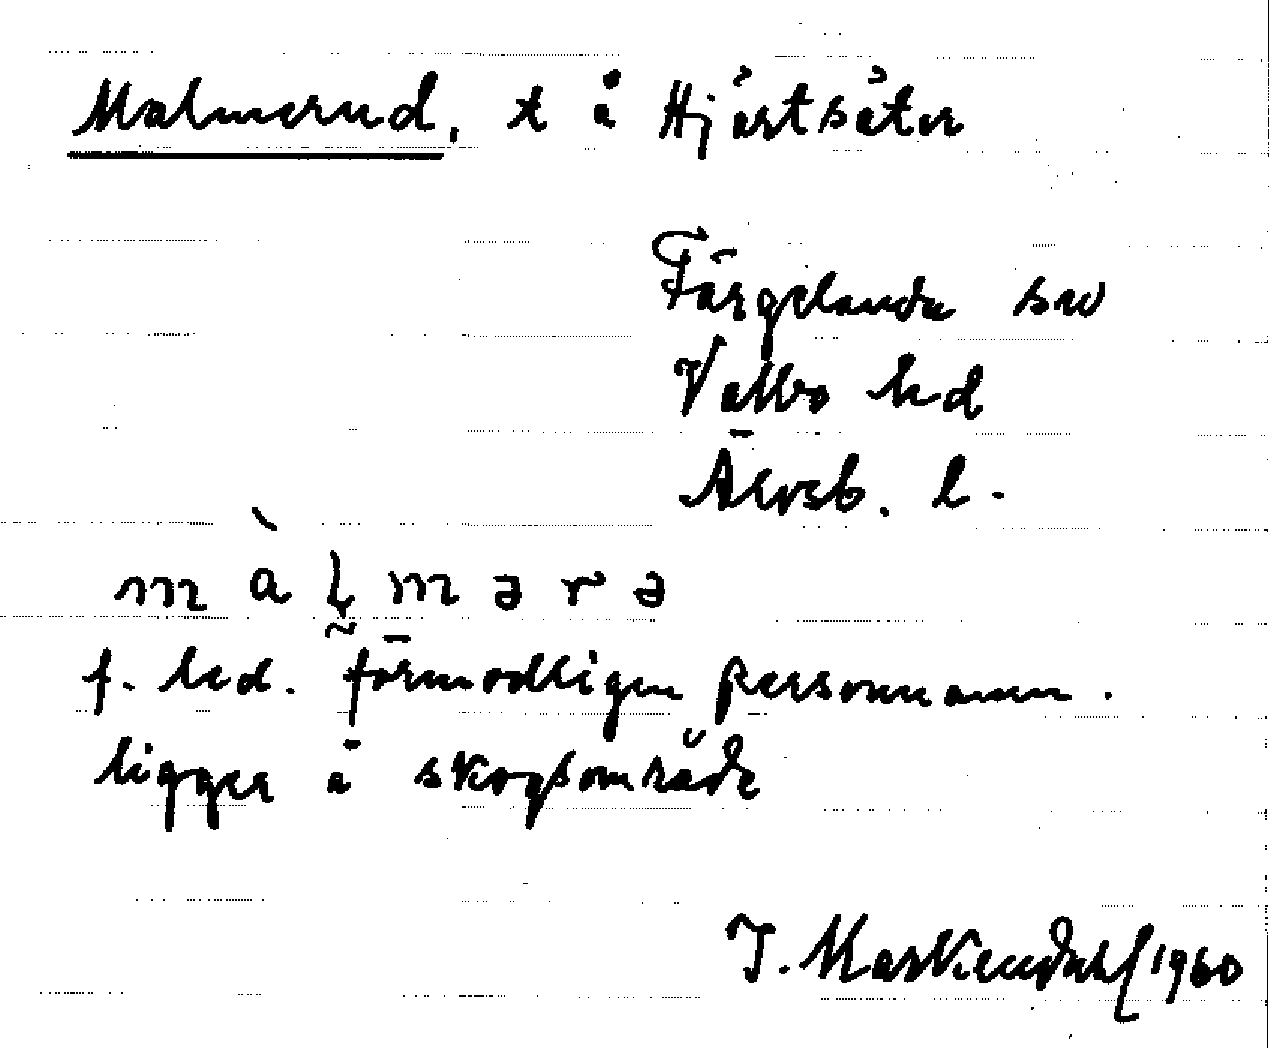 Malmerud, t å Hjärtsäter
Färgelanda sn
Valbo hd
Älvsb. l.
màḷmərə
f. led. förmodligen personnamn.
ligger å skogsområde
1960